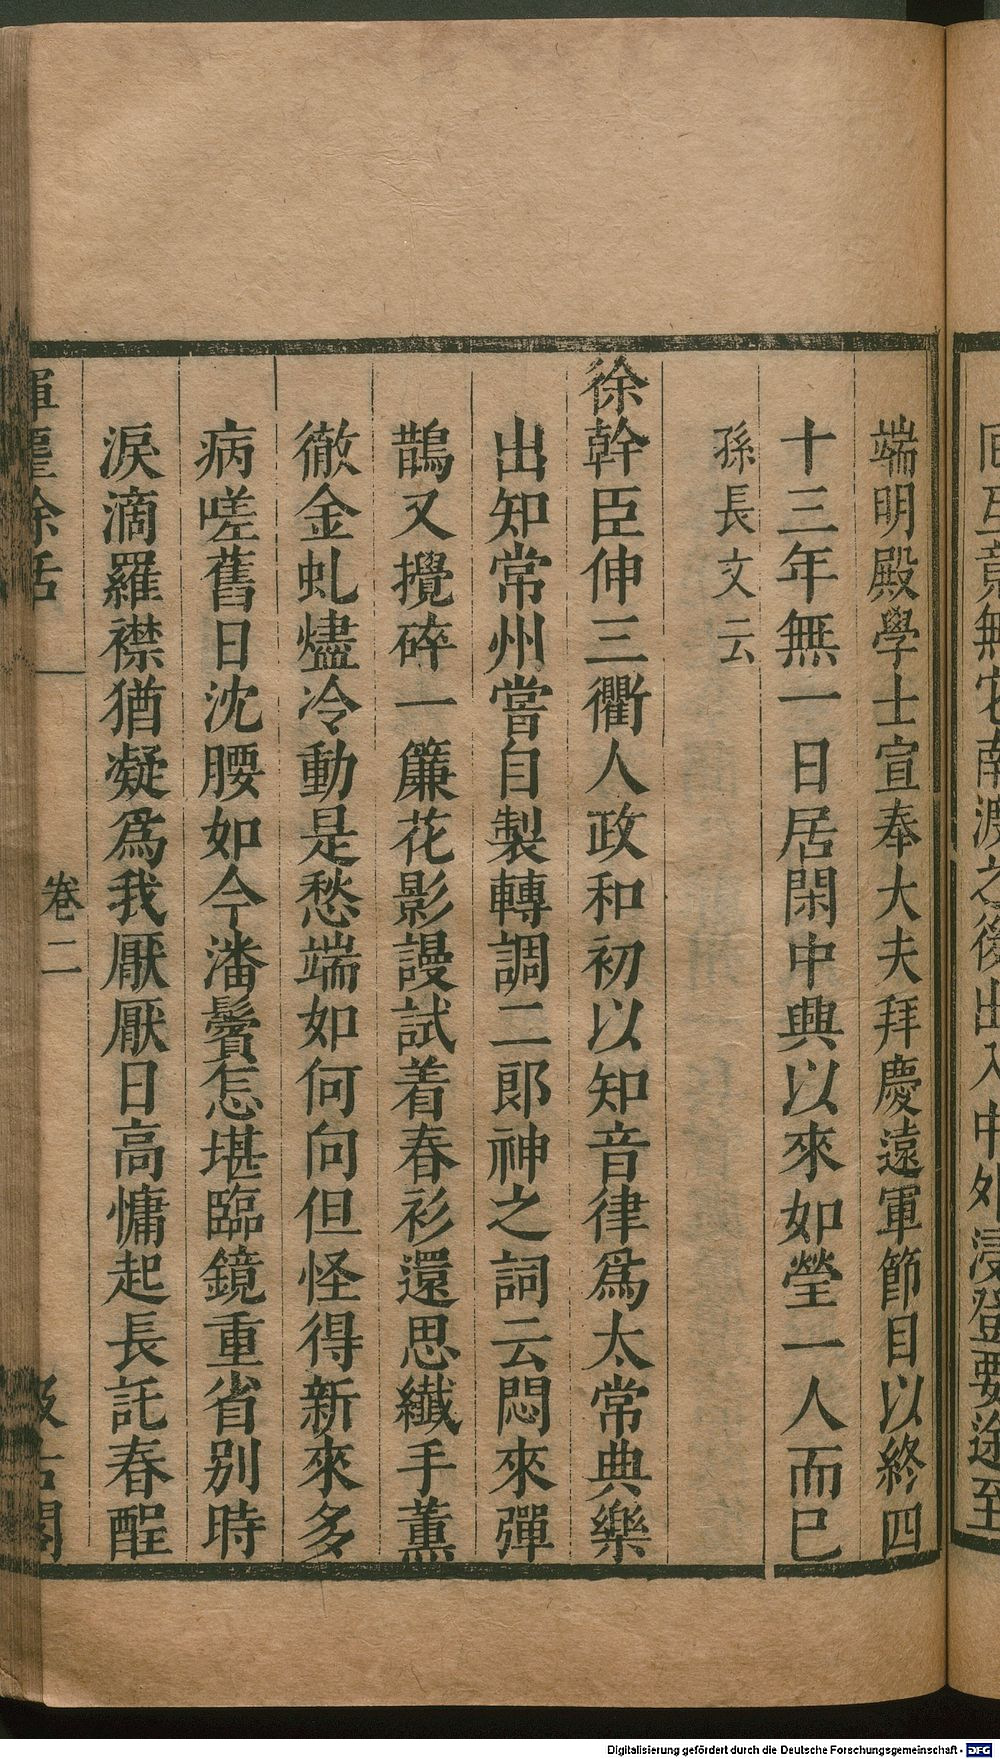 端明殿學士宣奉大夫拜慶遠軍節目以終四
十三年無一日居閑中興以來如瑩一人而已
孫長文云
徐幹臣伸三衢人政和初以知音律爲太常典樂
出知常州嘗自製轉調二郎神之詞云悶來彈
鵲又攪碎一簾花影謾試着春衫還思纖手薰
徹金虬燼冷動是愁端如何向但怪得新來多
病嗟舊日沈腰如今潘鬢怎堪臨鏡重省别時
淚滴羅襟猶凝爲我厭厭日高慵起長託春酲
卷二
Digitalisierung gefördert durch die Deutsche Forschungsgemeinschaft - DFG